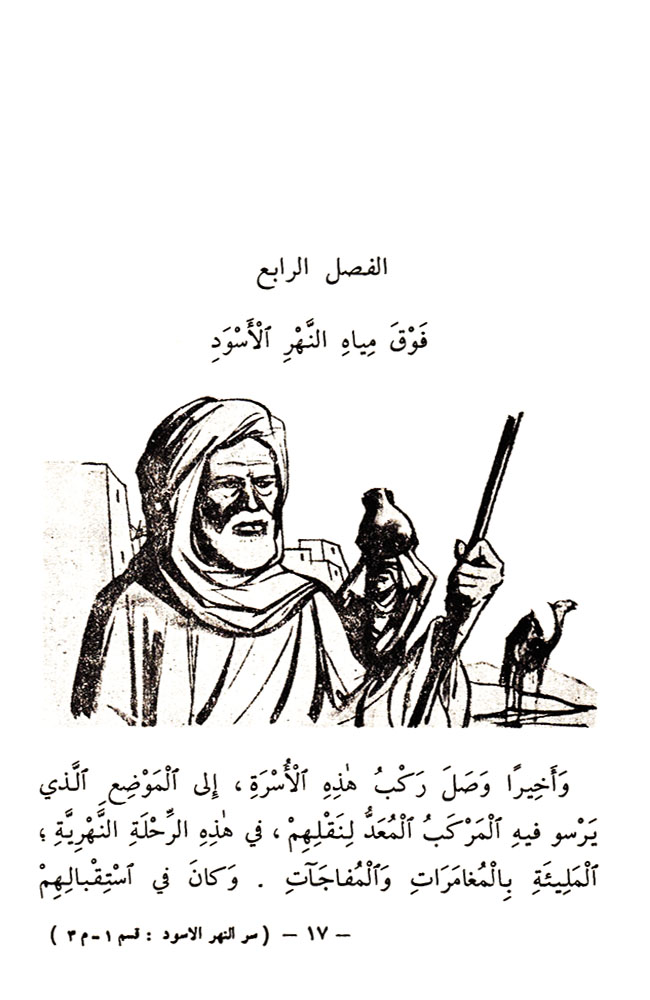 الفصل الرابع
فَوْقَ مِياهِ النَّهْرِ ٱلْأَسْوَدِ
وَأَخِيرًا وَصَلَ رَكْبُ هٰذِهِ ٱلْأُسْرَةِ ، إِلى ٱلْمَوْضِعِ ٱلَّذي
يَرْسو فيهِ ٱلْمَرْكَبُ ٱلْمُعَدُّ لِنَقْلِهِمْ ، في هٰذِهِ الرِّحْلَةِ النَّهْرِيَّةِ ؛
ٱلْمَلِيئَةِ بِٱلْمُغامَرَاتِ وَٱلْمُفاجَآتِ . وَكانَ في ٱسْتِقْبالِهِمْ
– ١٧ – ( سر النهر الاسود : قسم ١ - م ٣ )